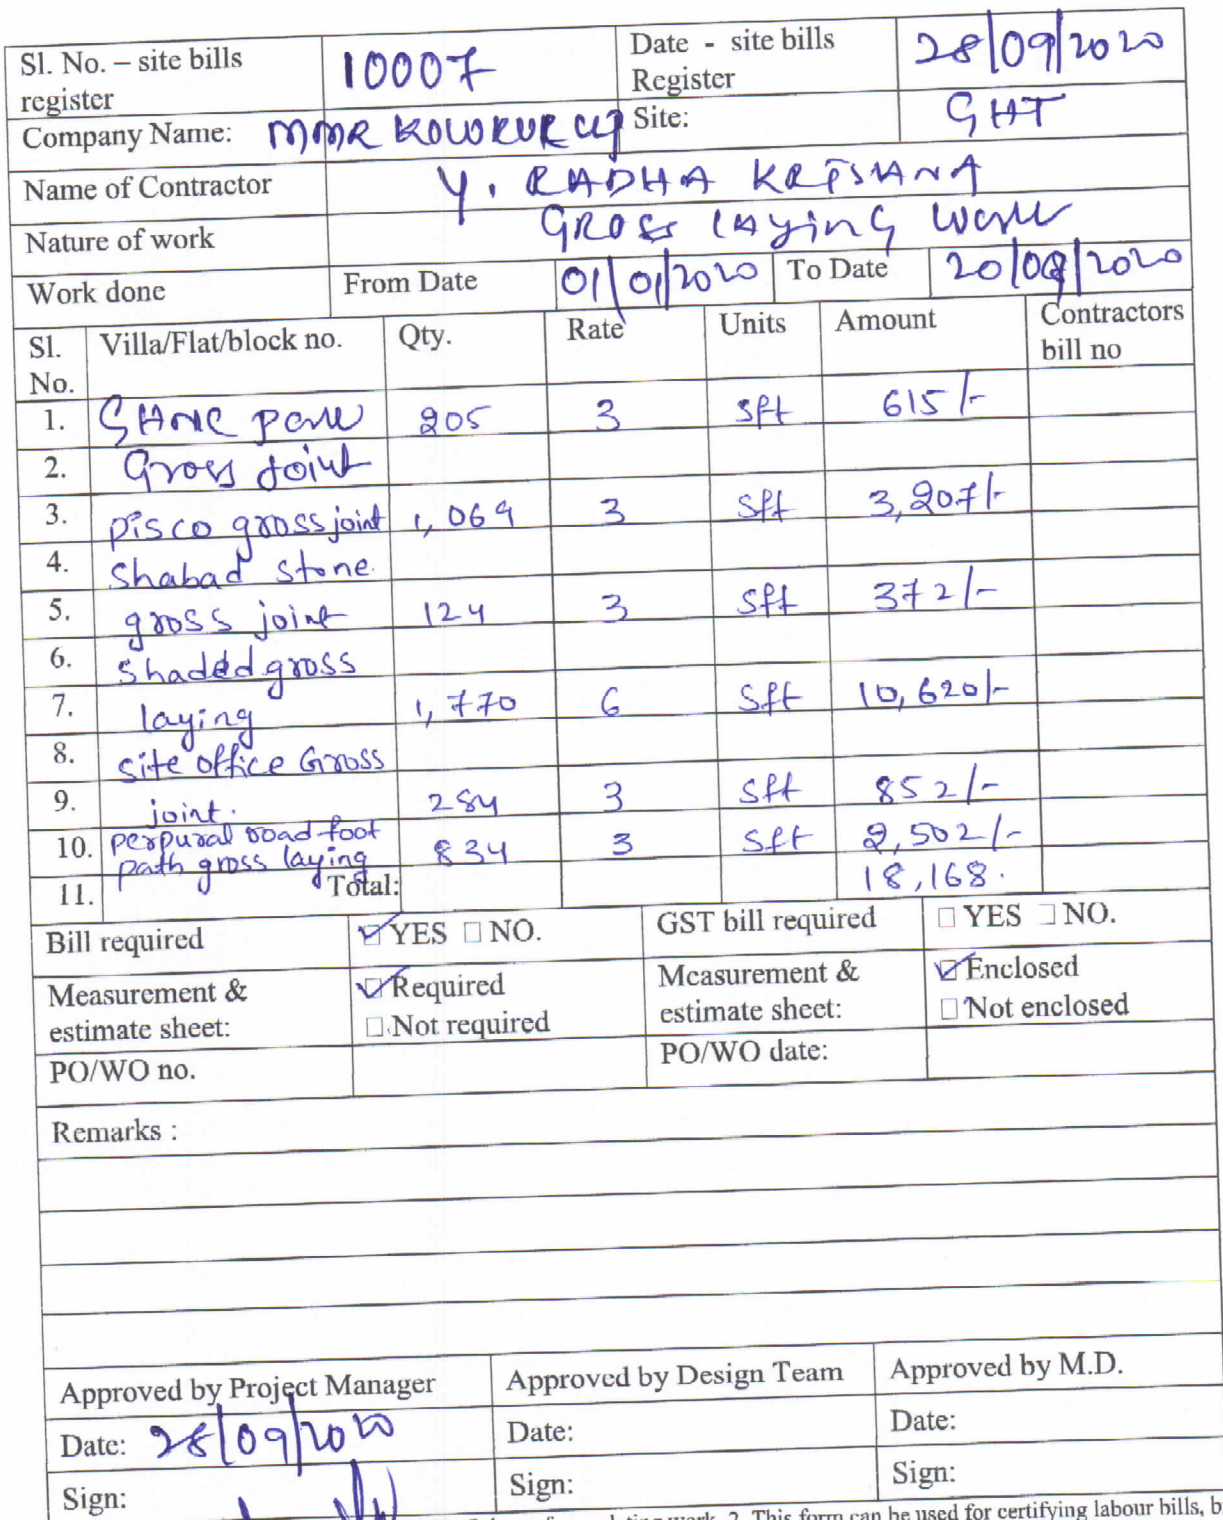 Sl. No. – site bills register 10007 Date - site bills Register 28/09/2020
Company Name: MMR KOWKUR LLP Site: GHT
Name of Contractor Y. RADHA KRISHANA
Nature of work GROSS LAYING WORK
Work done From Date 01/01/2020 To Date 20/09/2020
Sl. No. Villa/Flat/block no. Qty. Rate Units Amount Contractors bill no
1. 205 3 Sft 615/-
2. Gross Joint
3. Pisco gross joint 1,069 3 Sft 3,207/-
4. Shabad stone.
5. gross joint 124 3 Sft 372/-
6. Shaded gross
7. laying 1,770 6 Sft 10,620/-
8. site office Gross
9. joint. 284 3 Sft 852/-
10. perpural road foot path gross laying 834 3 Sft 2,502/-
11. Total: 18,168.
Bill required YES NO. GST bill required YES NO.
Measurement & estimate sheet: Required Not required Measurement & estimate sheet: Enclosed Not enclosed
PO/WO no. PO/WO date:
Remarks :
Approved by Project Manager Approved by Design Team Approved by M.D.
Date: 28/09/2020 Date: Date:
Sign: Sign: Sign:
work. 2. This form can be used for certifying labour bills, b